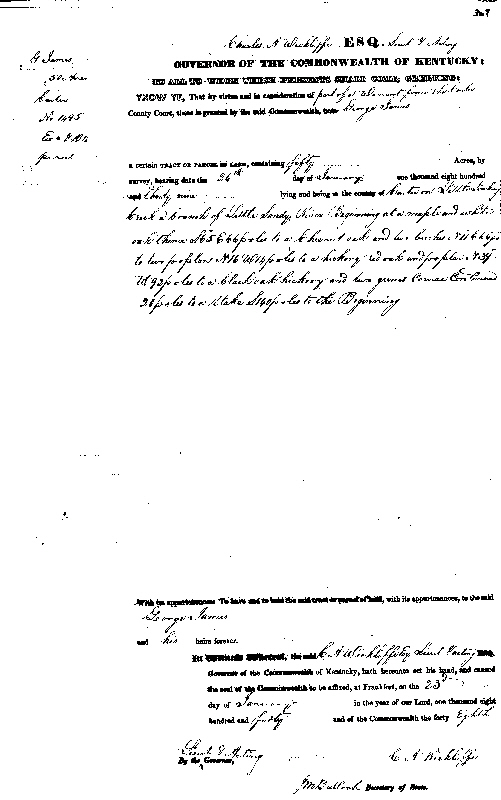 347
Charles A Wickliffe ESQ. Lieut & Acting
GOVERNOR OF THE COMMONWEALTH OF KENTUCKY:
TO ALL TO WHOM THESE PRESENTS SHALL COME, GREETING:
KNOW YE, That by virtue and in consideration of part of a Warrant from the Carter
County Court, there is granted by the said Commonwealth, unto George James
G James
50 Acres
Carter
No 1445
Ex & D
a certain TRACT OR PARCEL OF LAND, containing fifty Acres, by
survey, bearing date the 24th day of January one thousand eight hundred
and thirty nine lying and being in the county of Carter on
creek a branch of Little Sandy River Beginning at a maple and white
oak thence S65E66 poles to a chesnut oak and two birches
to two poplars N16W14 poles to a hickory red oak and poplar N39
W92 poles to a black oak hickory and two gums
26 poles to a stake S40 poles to the Beginning
With its appurtenances To have and to hold the said tract or parcel of land, with its appurtenances, to the said
George James
and his heirs forever.
In witness whereof, the said C A Wickliffe Esq Lieut & Acting
Governor of the Commonwealth of Kentucky, hath hereunto set his hand, and caused
the seal of the Commonwealth to be affixed, at Frankfort, on the 23
day of January in the year of our Lord, one thousand eight
hundred and forty and of the Commonwealth the forty Eighth
Lieut & Acting C A Wickliffe
By the Governor,
J M Bullock Secretary of State.